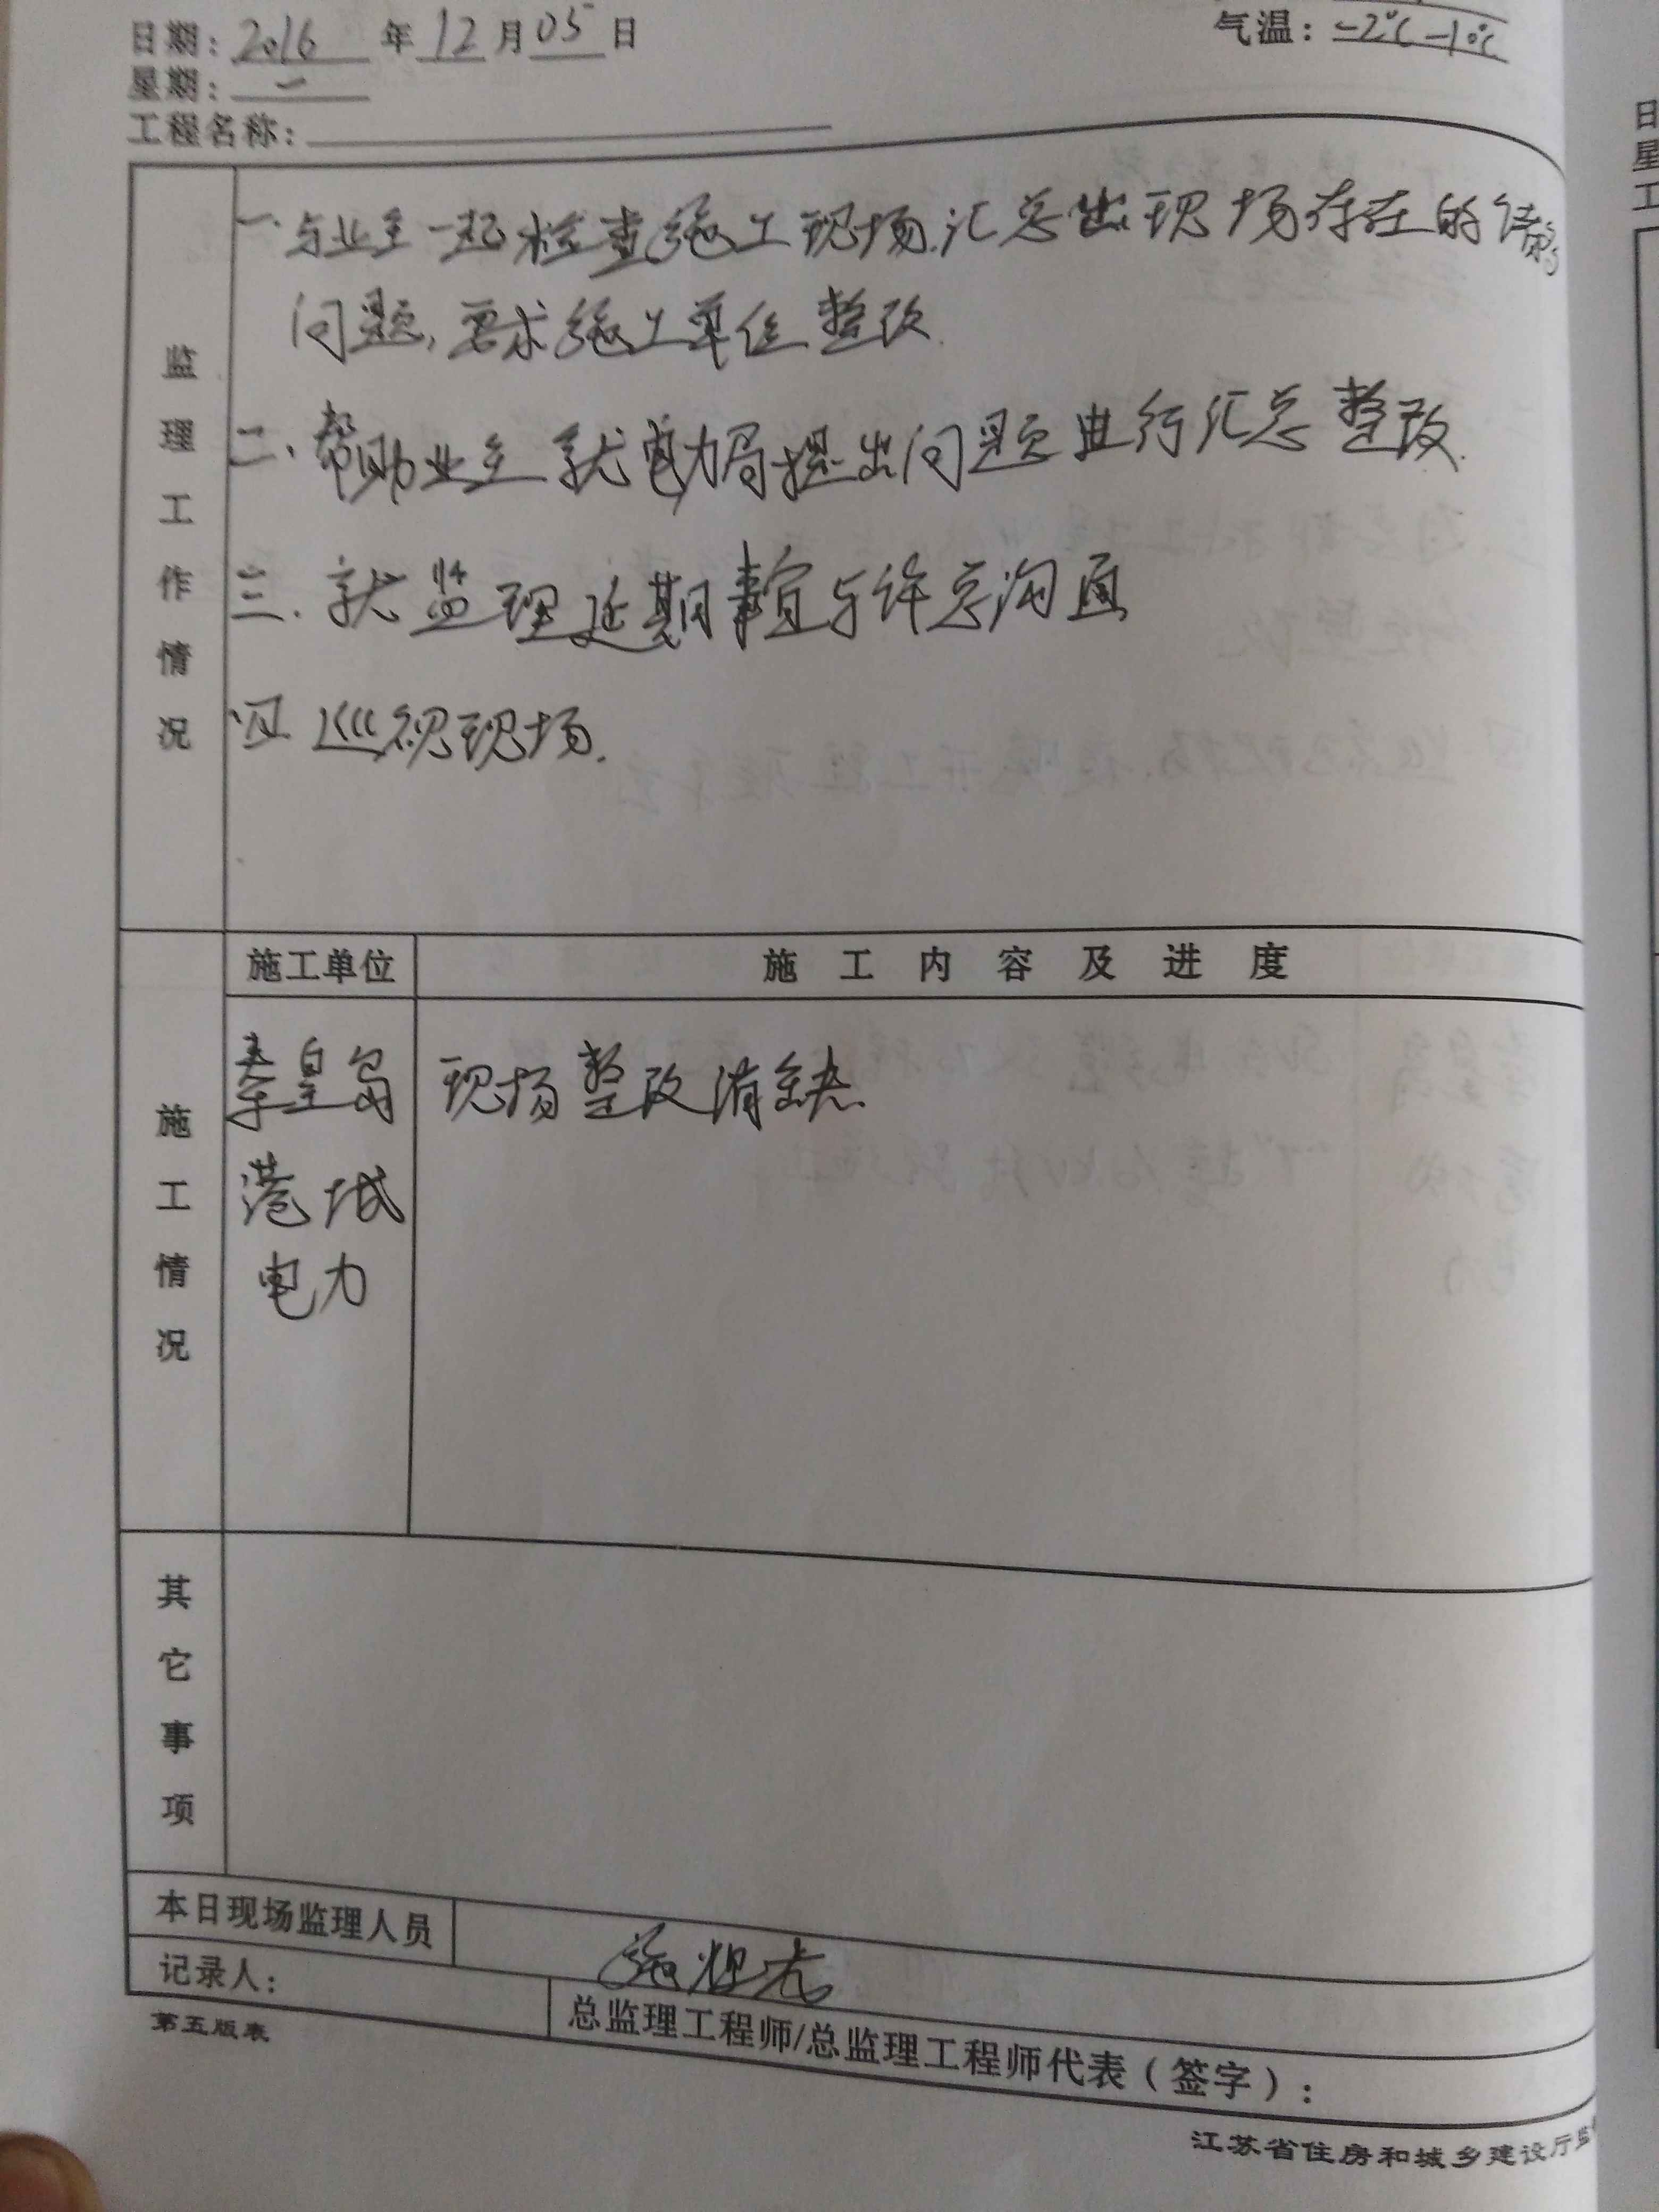 日期：2016年12月05日
气温：-2℃-10℃
星期：一
工程名称：
监理工作情况
一.与业主一起检查施工现场.汇总出现场存在的
问题,要求施工单位整改.
二.帮助业主就电力局提出问题进行汇总整改.
三.就监理延期事宜与许总沟通
四 巡视现场.
施工单位 施工内容及进度
施工情况
秦皇岛 现场整改消缺.
港城
电力
其它事项
本日现场监理人员
记录人：
总监理工程师/总监理工程师代表（签字）：
第五版表
江苏省住房和城乡建设厅监
日
星
工